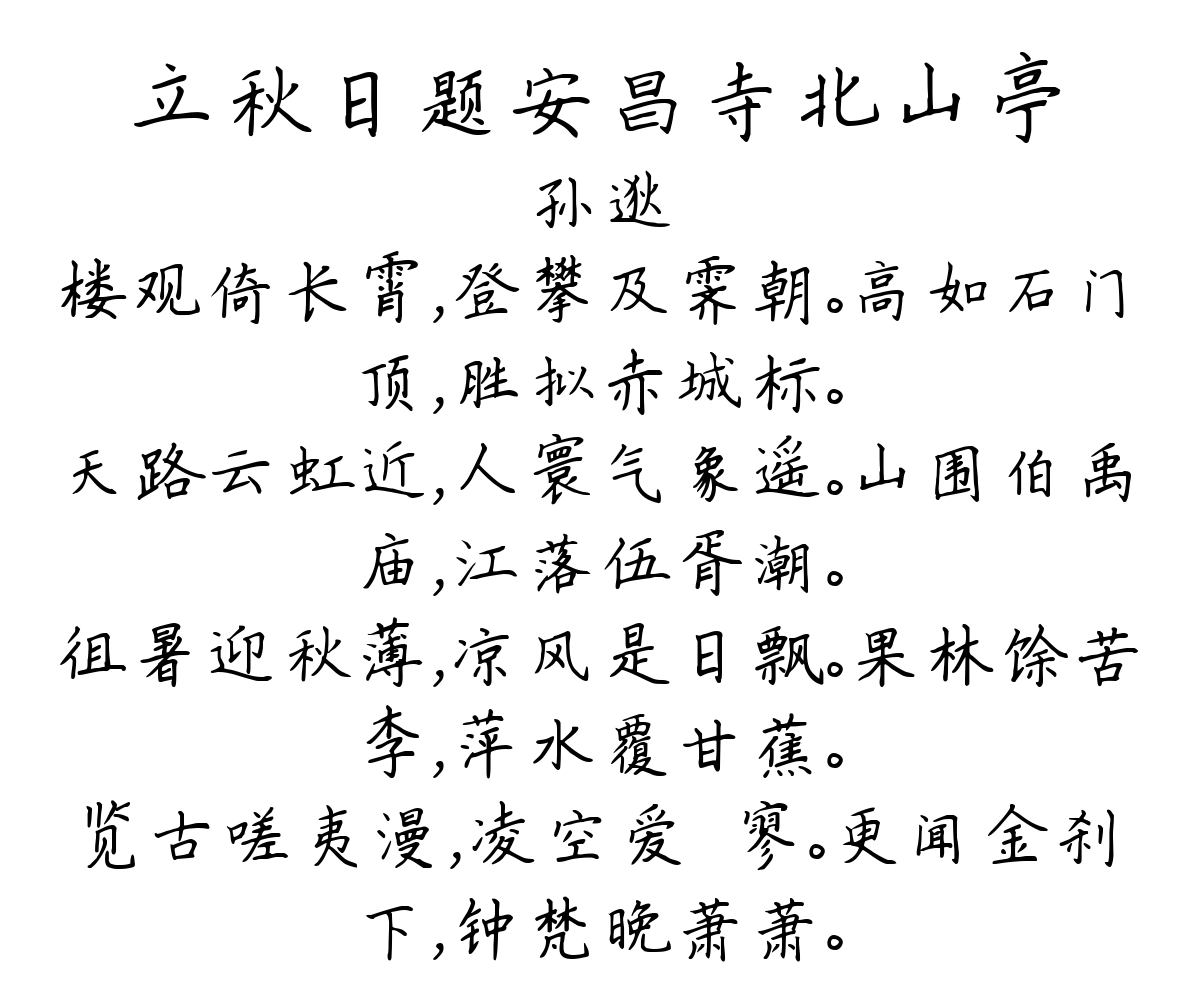 立秋日题安昌寺北山亭
孙逖
楼观倚长霄,登攀及霁朝。高如石门
顶,胜拟赤城标。
天路云虹近,人寰气象遥。山围伯禹
庙,江落伍胥潮。
徂暑迎秋薄,凉风是日飘。果林馀苦
李,萍水覆甘蕉。
览古嗟夷漫,凌空爱 寥。更闻金刹
下,钟梵晚萧萧。